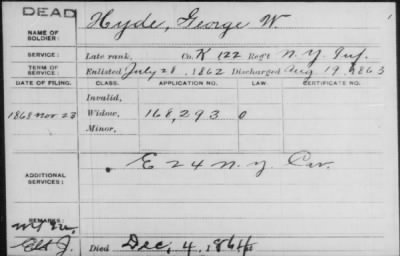 DEAD
NAME OF SOLDIER: Hyde, George W.
SERVICE: Late rank, Co. K 122 Reg't N.Y. Inf.
TERM OF SERVICE: Enlisted July 28, 1862 Discharged Aug 19, 1863
DATE OF FILING. CLASS. APPLICATION NO. LAW. CERTIFICATE NO.
Invalid,
1868 Nov 23 Widow, 168,293 0
Minor,
ADDITIONAL SERVICES: E 24 N.Y. Cav.
REMARKS:
Died Dec. 4, 1864